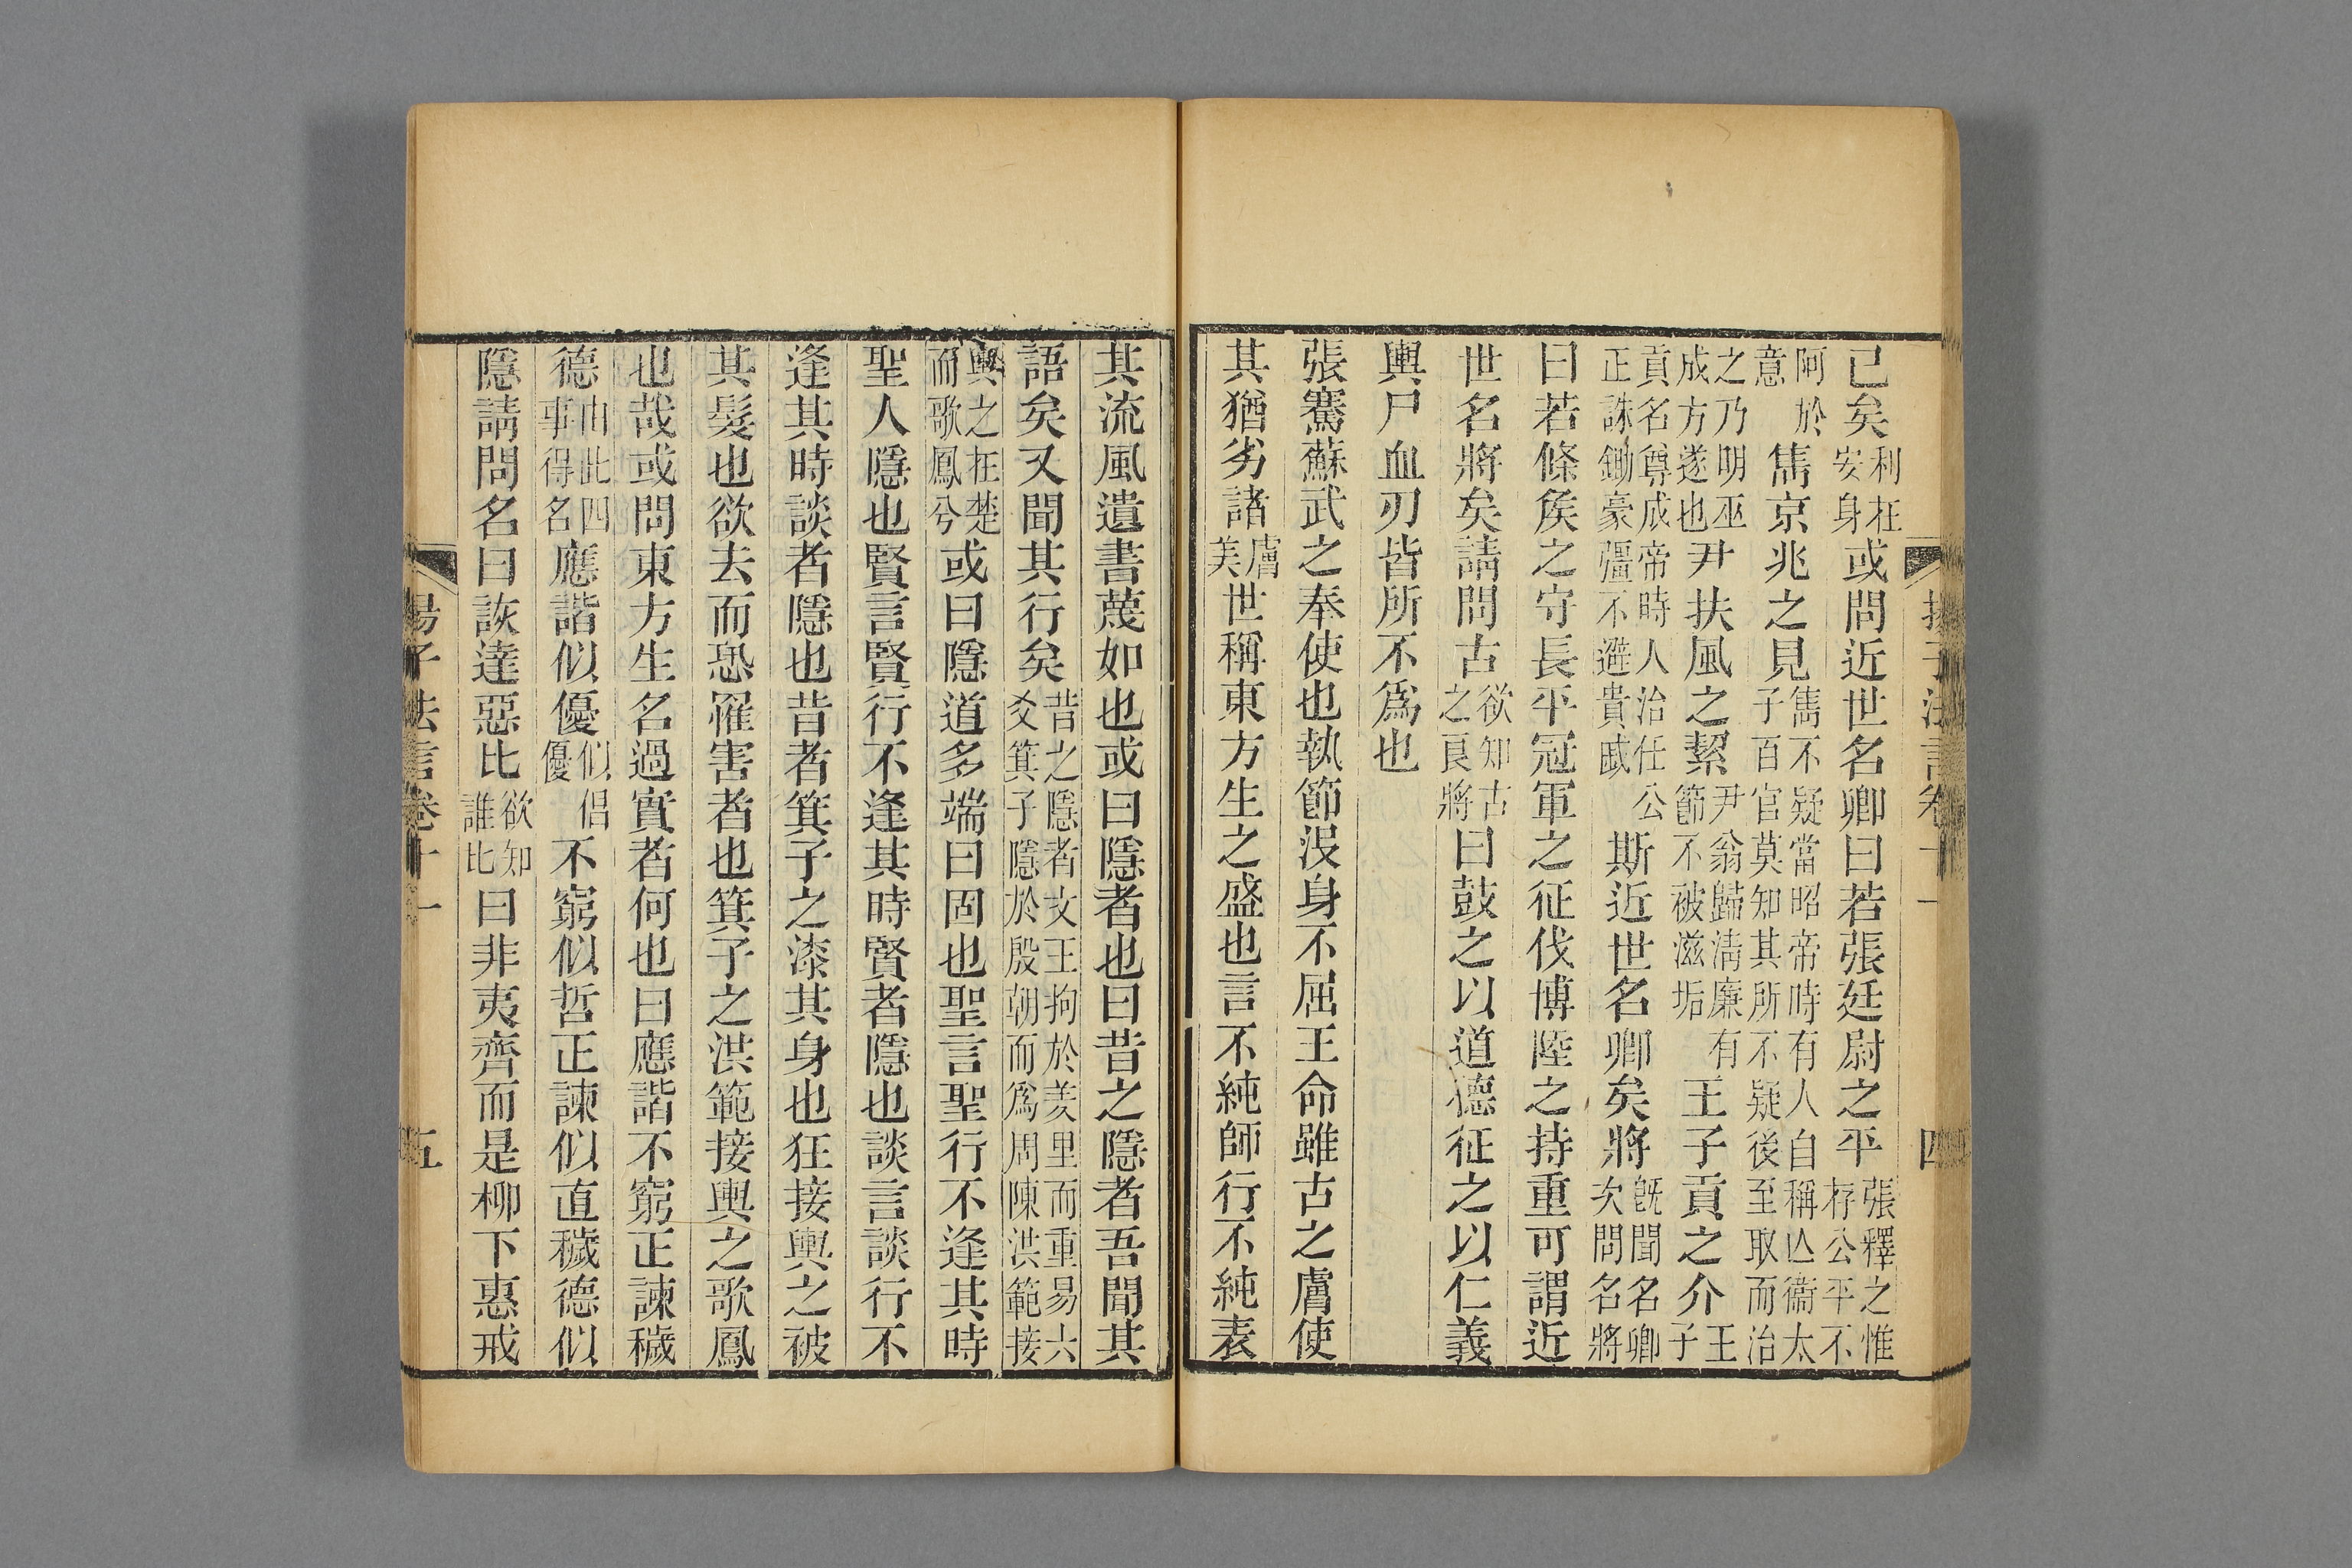 揚子法言卷十一 四
已矣利在安身或問近世名卿曰若張廷尉之平張釋之惟存公平不
阿於意雋京兆之見雋不疑當昭帝時有人自稱亾衞太子百官莫知其所不疑後至取而治
之乃明巫成方遂也尹扶風之絜尹翁歸淸廉有節不被滋垢王子貢之介王子
貢名尊成帝時人治任公正誅鋤豪彊不避貴戚斯近世名卿矣將旣聞名卿次問名將
曰若條矦之守長平冠軍之征伐博陸之持重可謂近
世名將矣請問古欲知古之良將曰鼓之以道德征之以仁義
輿尸血刃皆所不爲也
張騫蘇武之奉使也執節沒身不屈王命雖古之膚使
其猶劣諸膚美世稱東方生之盛也言不純師行不純表
其流風遺書蔑如也或曰隱者也曰昔之隱者吾聞其
語矣又聞其行矣昔之隱者文王拘於羑里而重易六爻箕子隱於殷朝而爲周陳洪範接
輿之在楚而歌鳳兮或曰隱道多端曰固也聖言聖行不逢其時
聖人隱也賢言賢行不逢其時賢者隱也談言談行不
逢其時談者隱也昔者箕子之漆其身也狂接輿之被
其髮也欲去而恐罹害者也箕子之洪範接輿之歌鳳
也哉或問東方生名過實者何也曰應諧不窮正諫穢
德由此四事得名應諧似優似倡優不窮似哲正諫似直穢德似
隱請問名曰詼達惡比欲知誰比曰非夷齊而是柳下惠戒
揚子法言卷十一 五